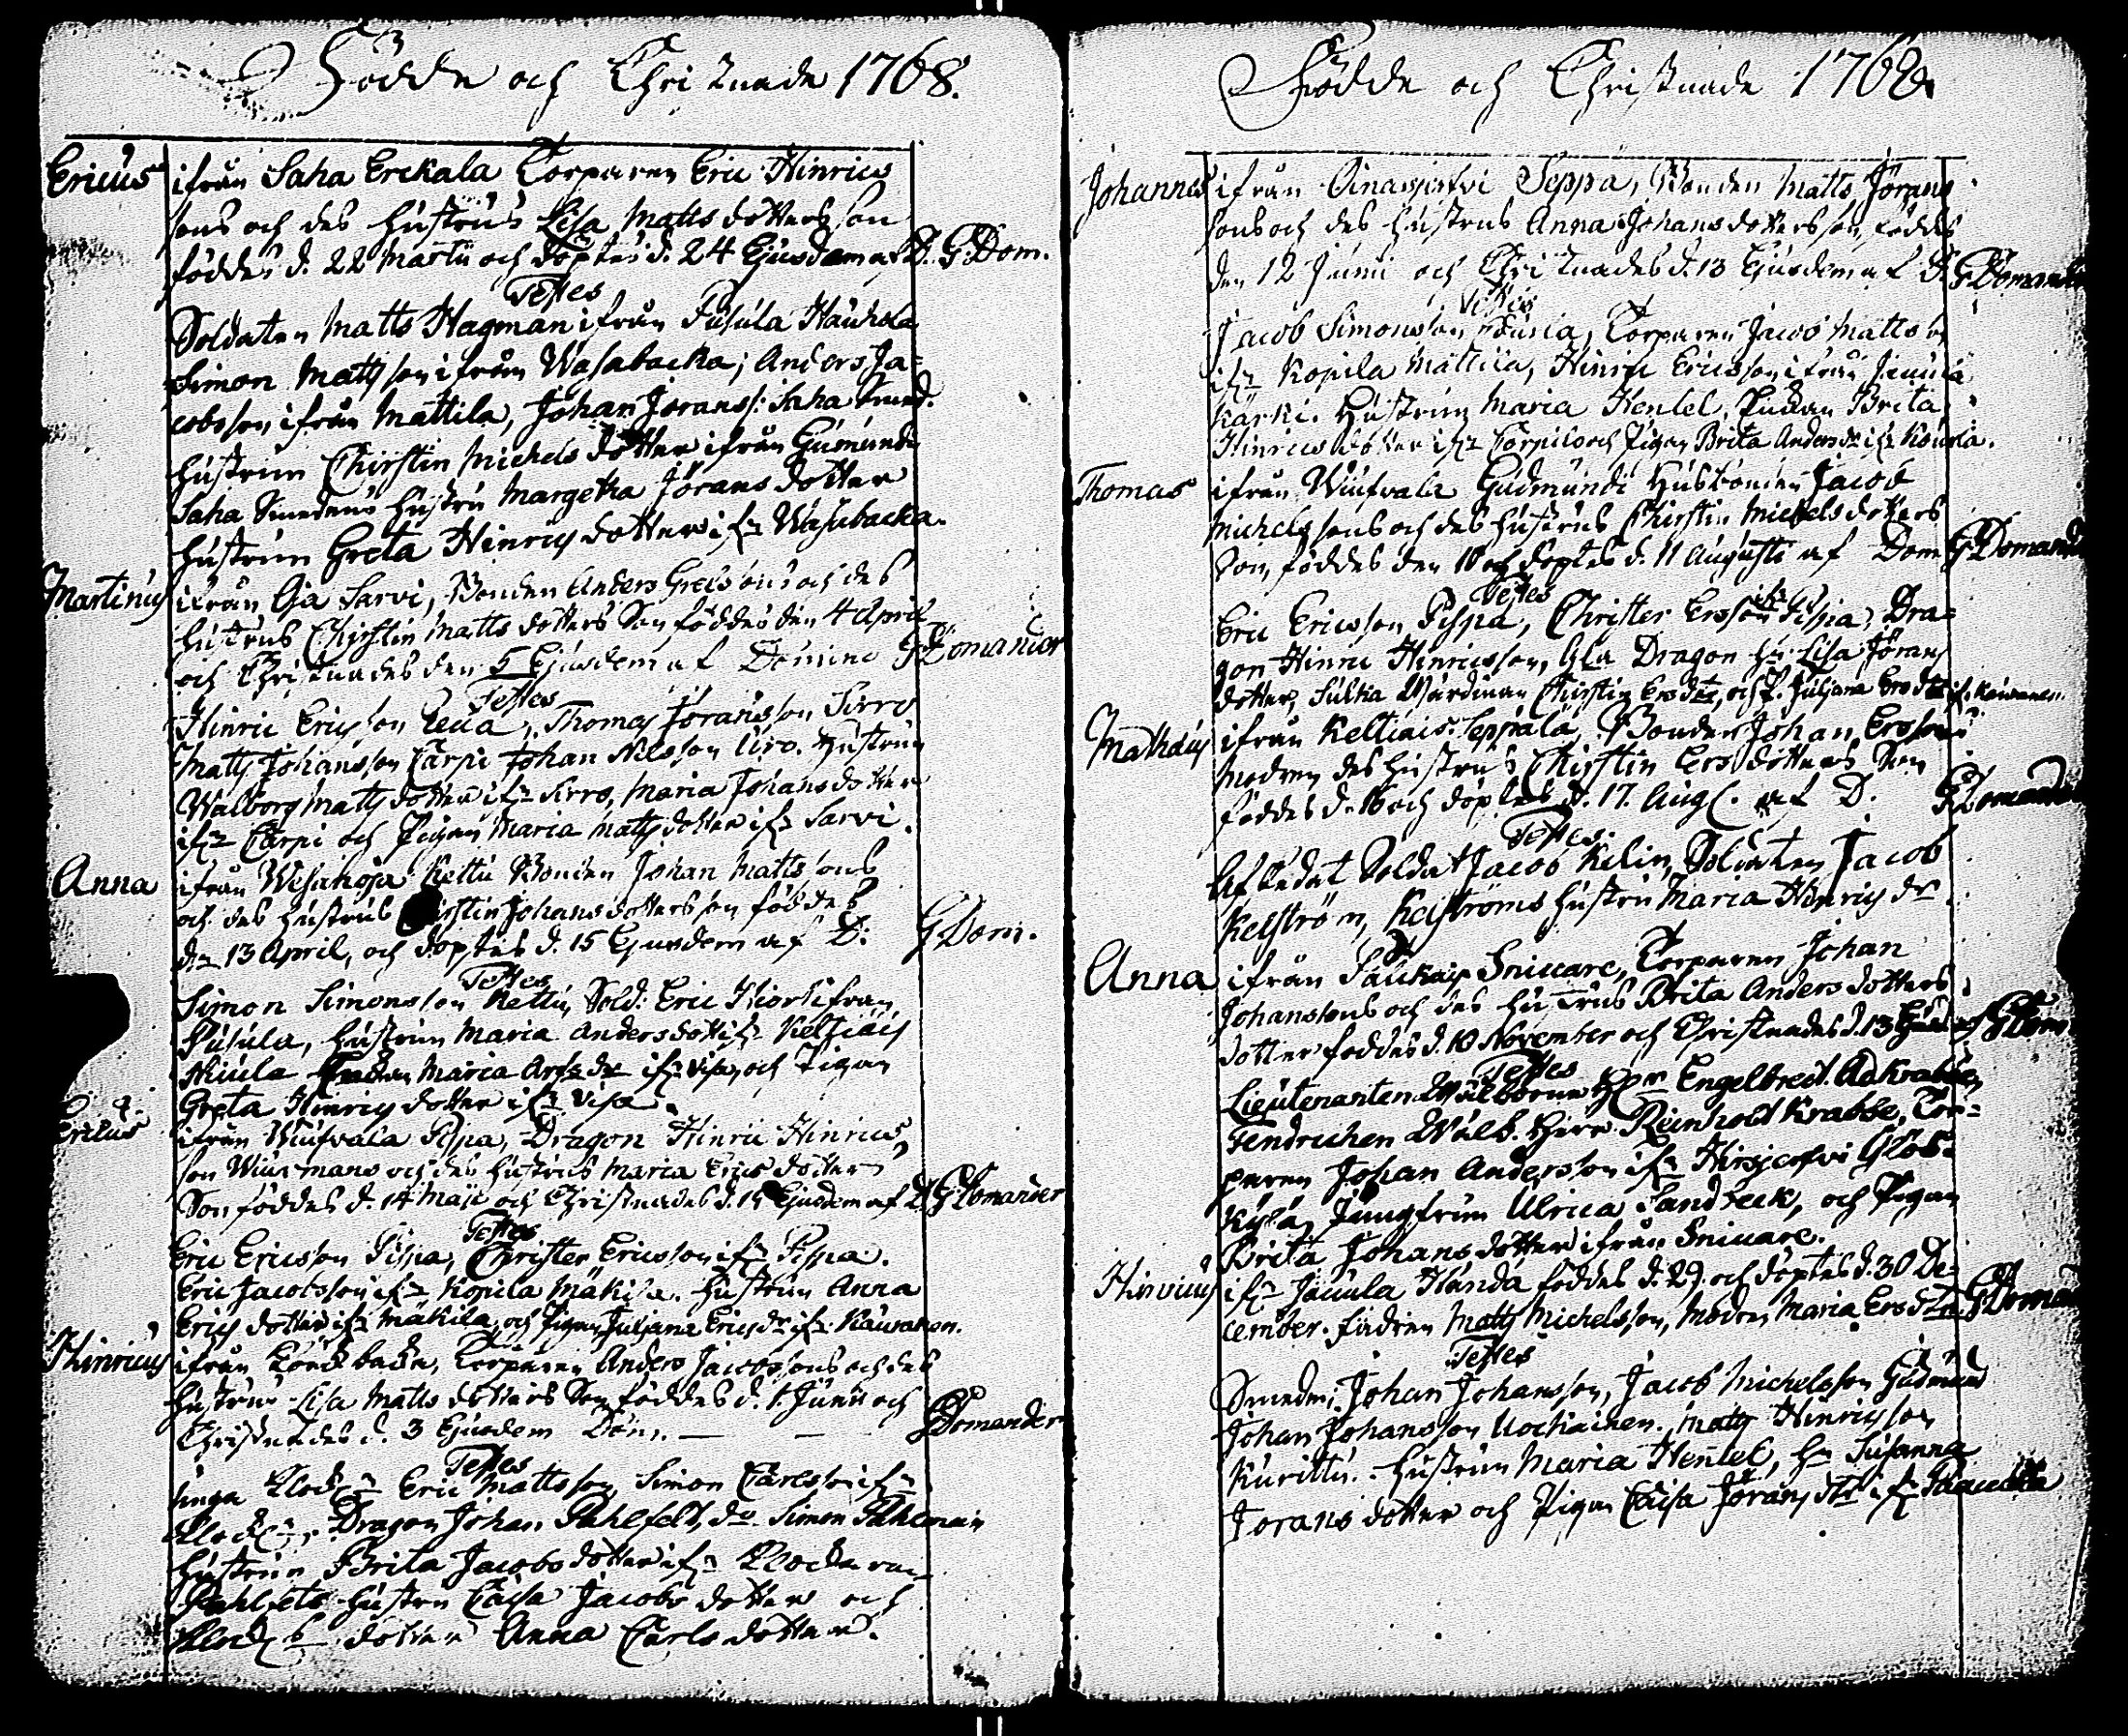 Födde och Christnade 1768.
Ericus ifrån Saha Erckala Torparen Eric Hinrics
sons och des hustrus Lisa Matts dotters son
föddes d. 22 Martii och döptes d. 24 Ejusdem af D. G. Dom.
Testes
Soldaten Matts Hagman ifrån Pusula Hauhola
Simon Matts son ifrån Wasabacka; Anders Ja=
cobsson ifrån Mattila, Johan Joranss: Saha Smed.
Hustrun Chirstin Michels dotter ifrån Gumunde
Saha Smedens hustru Margetha Jörans dotter
Hustrun Greta Hinrics dotter ifr Wasabacka.
Martinus ifrån Oja Sarvi, Bonden Anders Grelsons och des
Hustrus Chirstin Matts dotters Son föddes den 4 April
och Christnades den 5 Ejusdem af Domine G Domander
Testes
Hinric Ericsson, Thomas Joransson Sirro
Matts Johansson Carpi Johan Nilsson Uro. Hustrun
Walborg Matts dotter ifr Sirro, Maria Johans dotter
ifr Carpi och Pigan Maria Matts dotter ifr Sarvi.
Anna ifrån Wesanoja Kettu Bonden Johan Matts sons
och des hustrus Chirstin Johans dotters son föddes
d. 13 April, och döptes d. 15 Ejusdem af D: G Dom.
Testes
Simon Simonsson Kettu, Sold: Eric Hiort ifrån
Pusula, hustrun Maria Anders dott ifr Keltiäis
Niuula Enckan Maria ifr Visa, och Pigan
Greta Hinrics dotter ifr Visa.
Ericus ifrån Wiufvala Pispa, Dragon Hinric Hinrics
son Wiurmans och des hustrus Maria Erics dotters
Son föddes d. 14 Maji och Christnades d. 15 Ejusdem af D G Domander
Testes
Eric Ericsson Pispa, Christer Ericsson ifr Pispa.
Eric Jacobsson ifr Kopila Mäkila. Hustrun Anna
Erics dotter ifr Mäkila, och Pigan Juljana Erics dr ifr Kauranen.
Hinricus ifrån backa, Torparen Anders Jacobssons och des
hustrus Lisa Matts dotters Son föddes d. 1. Junii och
Christnades d. 3 Ejusdem Dom. — — G Domander
Testes
Eric Mattsson, Simon Carlsson ifr
Dragon Johan Pahlfelt, do Simon Pahlman
Hustrun Brita Jacobs dotter ifr Klockaren
Pahlfelts hustru Caisa Jacobs dotter och
dotter Anna Carls dotter.
Födde och Christnade 1768
Johannes ifrån Oinasjerfvi Seppä, Bonden Matts Jörans
sons och des hustrus Anna Johans dotters son, föddes
den 12 Junii och Christnades d. 13 Ejusdem af D. G Domander
Testes
Jacob Simonsson, Torparen Jacob Mattsson
ifr Kopila Mattila, Hinric Ericsson ifrån
Kärki. Hustrun Maria Hentel, Enckan Brita
Hinrics dotter ifr Carpilo och Pigan Brita Anders dr ifr Kourla.
Thomas ifrån Wiufvala Gudmunds Husbonden Jacob
Michelssons och des hustrus Chirstin Michels dotters
Son, föddes den 10 och döptes d. 11 Augusti af Dom G Domander
Testes
Eric Ericsson Pispa, Christer Ersson ifr Pispa, Dra=
gon Hinric Hinricsson, Gla Dragon hu. Lisa Jörans
dotter, Sulka Chirstin Ers dtr, och P. Juljana Ers dtr if. Kauranen.
Mathæus ifrån Keltiäis Seppälä, Bonden Johan Ersson
Modren des hustrus Chirstin Ers dotters Son
föddes d. 16 och döptes d. 17. Aug. af D. G Domander
Testes.
Afskedat Soldat Jacob Kelin, Soldaten Jacob
Kelström, Kelströms hustru Maria Hinrics dr
Anna ifrån Saukaip Sniccare, Torparen Johan
Johanssons och des hustrus Brita Anders dotters
dotter föddes d. 10 November och Christnades d. 13 Ejusd. af G Dom
Testes
Lieutenanten Wälborne Her Engelbrect Ad Krabbe,
Fendrichen Wälb. Herr Reinhold Krabbe, Tor=
paren Johan Andersson ifr Hirsjerfvi Glös.
Kylä, Jungfrun Ulrica Sandbeck, och Pigan
Brita Johans dotter ifrån Sniccare.
Hinricus ifr Jauula Händä föddes d. 29. och döptes d. 30 De=
cember. fadren Matts Michelsson, Modren Maria Ers dtr G Domand
Testes
Smeden Johan Johansson, Jacob Michelsson Gudmund
Johan Johansson Uochainen. Matts Hinricsson
Kurittu. Hustrun Maria Hentel, H. Susanna
Jorans dotter och Pigan Caisa Jörans dtr ifr